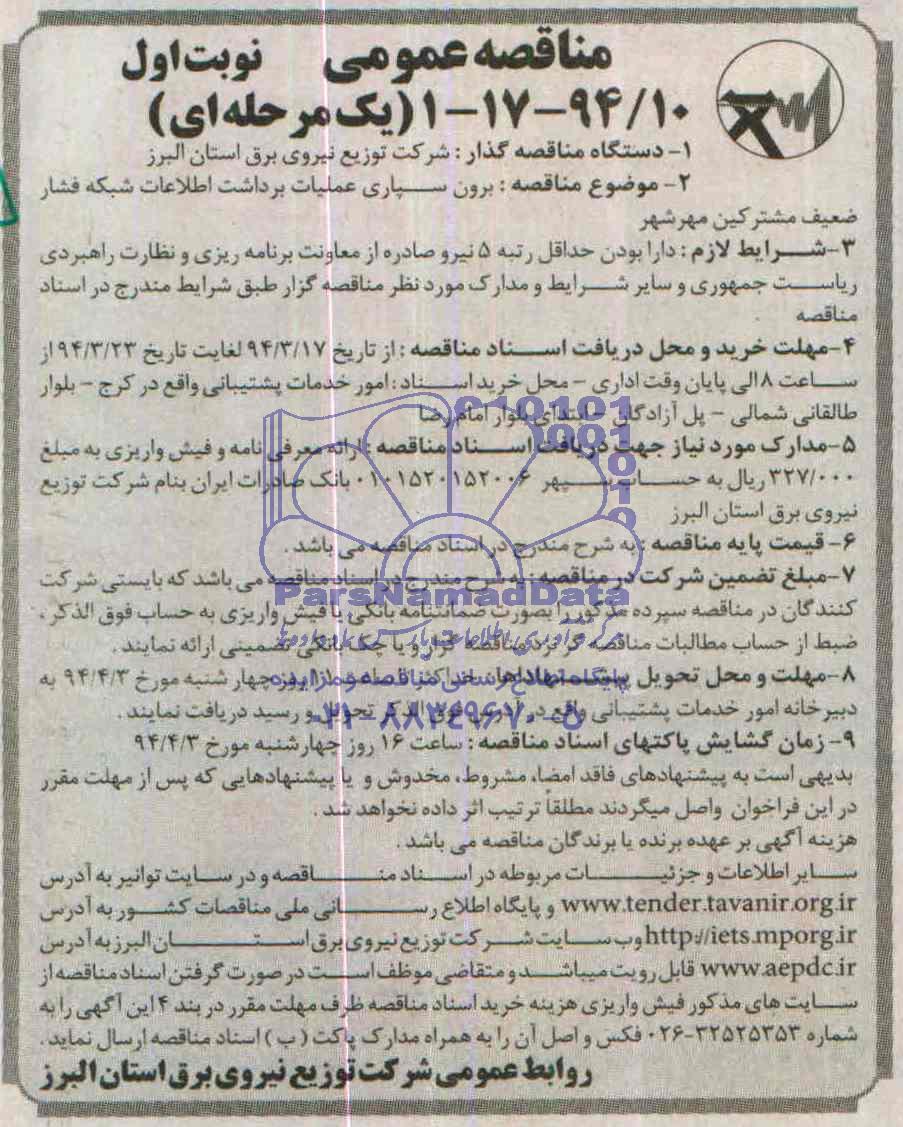 مناقصه عمومی نوبت اول
۱-۱۷-۹۴/۱۰ (یک مرحله ای)
۱- دستگاه مناقصه گذار : شرکت توزیع نیروی برق استان البرز
۲- موضوع مناقصه : برون سپاری عملیات برداشت اطلاعات شبکه فشار
ضعیف مشترکین مهرشهر
۳- شرایط لازم : دارا بودن حداقل رتبه ۵ نیرو صادره از معاونت برنامه ریزی و نظارت راهبردی
ریاست جمهوری و سایر شرایط و مدارک مورد نظر مناقصه گزار طبق شرایط مندرج در اسناد
مناقصه
۴- مهلت خرید و محل دریافت اسناد مناقصه : از تاریخ ۹۴/۳/۱۷ لغایت تاریخ ۹۴/۳/۲۳ از
ساعت ۸ الی پایان وقت اداری - محل خرید اسناد : امور خدمات پشتیبانی واقع در کرج - بلوار
طالقانی شمالی - پل آزادگان - ابتدای بلوار امام رضا
۵- مدارک مورد نیاز جهت دریافت اسناد مناقصه : ارائه معرفی نامه و فیش واریزی به مبلغ
۳۲۷/۰۰۰ ریال به حساب سپهر ۰۱۰۱۵۲۰۱۵۲۰۰۶ بانک صادرات ایران بنام شرکت توزیع
نیروی برق استان البرز
۶- قیمت پایه مناقصه : به شرح مندرج در اسناد مناقصه می باشد .
۷- مبلغ تضمین شرکت در مناقصه : به شرح مندرج در اسناد مناقصه می باشد که بایستی شرکت
کنندگان در مناقصه سپرده مذکور را بصورت ضمانتنامه بانکی یا فیش واریزی به حساب فوق الذکر ،
ضبط از حساب مطالبات مناقصه گر نزد مناقصه گزار و یا چک بانکی تضمینی ارائه نمایند .
۸- مهلت و محل تحویل پیشنهادها : حداکثر تا ساعت روز چهار شنبه مورخ ۹۴/۴/۳ به
دبیرخانه امور خدمات پشتیبانی واقع در تحویل و رسید دریافت نمایند .
۹- زمان گشایش پاکتهای اسناد مناقصه : ساعت ۱۶ روز چهارشنبه مورخ ۹۴/۴/۳
بدیهی است به پیشنهادهای فاقد امضا، مشروط، مخدوش و یا پیشنهادهایی که پس از مهلت مقرر
در این فراخوان واصل میگردند مطلقاً ترتیب اثر داده نخواهد شد .
هزینه آگهی بر عهده برنده یا برندگان مناقصه می باشد .
سایر اطلاعات و جزئیات مربوطه در اسناد مناقصه و در سایت توانیر به آدرس
www.tender.tavanir.org.ir و پایگاه اطلاع رسانی ملی مناقصات کشور به آدرس
http://iets.mporg.ir وب سایت شرکت توزیع نیروی برق استان البرز به آدرس
www.aepdc.ir قابل رویت میباشد و متقاضی موظف است در صورت گرفتن اسناد مناقصه از
سایت های مذکور فیش واریزی هزینه خرید اسناد مناقصه ظرف مهلت مقرر در بند ۴ این آگهی را به
شماره ۳۲۵۲۵۳۵۳-۰۲۶ فکس و اصل آن را به همراه مدارک پاکت ( ب ) اسناد مناقصه ارسال نماید .
روابط عمومی شرکت توزیع نیروی برق استان البرز
ParsNamadData
۰۲۱-۸۸۳۴۹۶۷۰-۵